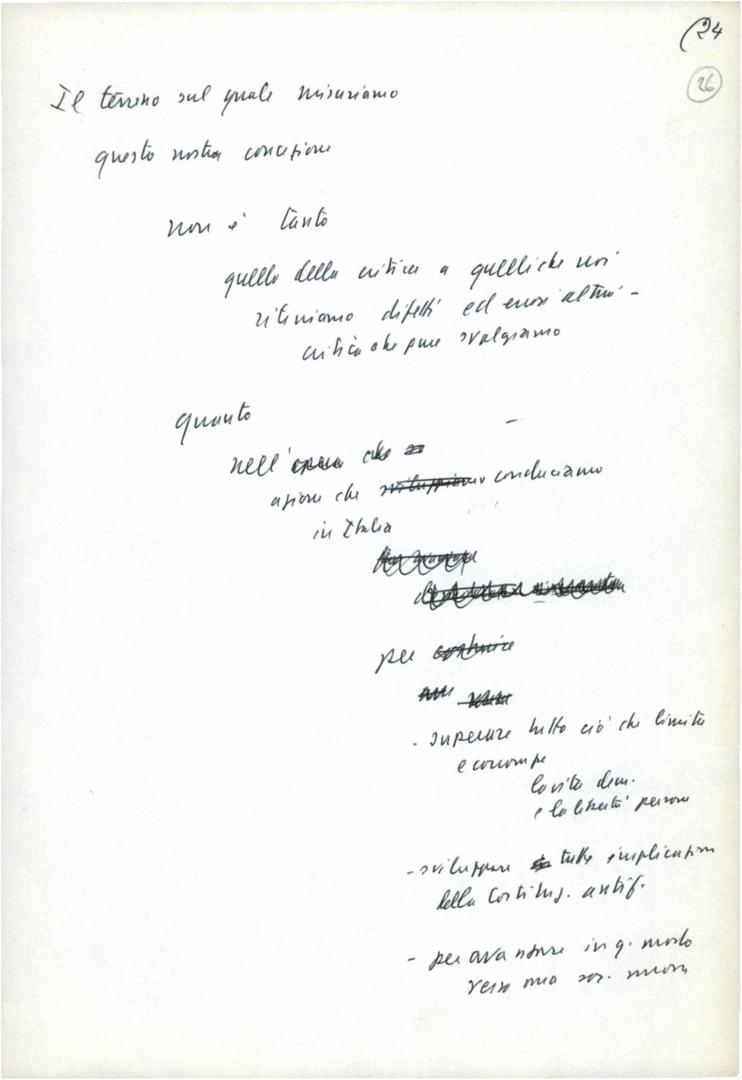 24
26
Il terreno sul quale misuriamo
questa nostra concezione
non è tanto
quello della critica a quelli che noi
riteniamo difetti ed errori altrui -
critica che pure svolgiamo
quanto
nell'opera che
azione che sviluppiamo conduciamo
in Italia
per costruire
- superare tutto ciò che limita
e corrompe
la vita dem.
e la libertà persone
- sviluppare tutte implicazioni
della Costituz. antif.
- per avanzare in q. modo
verso una soc. nuova